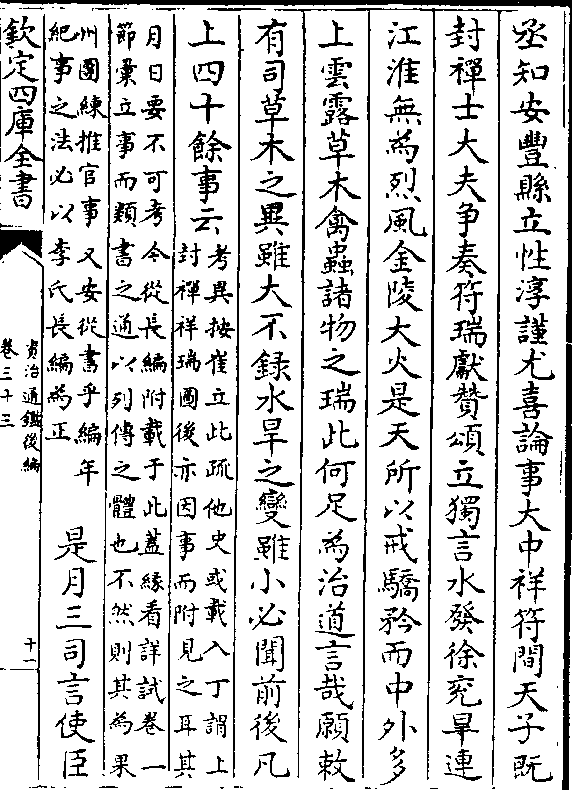 丞知安豐縣立性淳謹尤喜論事大中祥符間天子既
封禪士大夫争奏符瑞獻贊頌立獨言水發徐兖旱連
江淮無為烈風金陵大火是天所以戒驕矜而中外多
上雲露草木禽蟲諸物之瑞此何足為治道言哉願敕
有司草木之異雖大不錄水旱之變雖小必聞前後凡
上四十餘事云
考異按崔立此疏他史或載入丁謂上
封禪祥瑞圖後亦因事而附見之耳其
月日要不可考今從長編附載于此蓋緣看詳試卷一
節彚立事而類書之通以列傳之體也不然則其為果
州團練推官事又安從書乎編年
紀事之法必以李氏長編為正
是月三司言使臣
欽定四庫全書
資治通鑑後編
卷三十三
十一